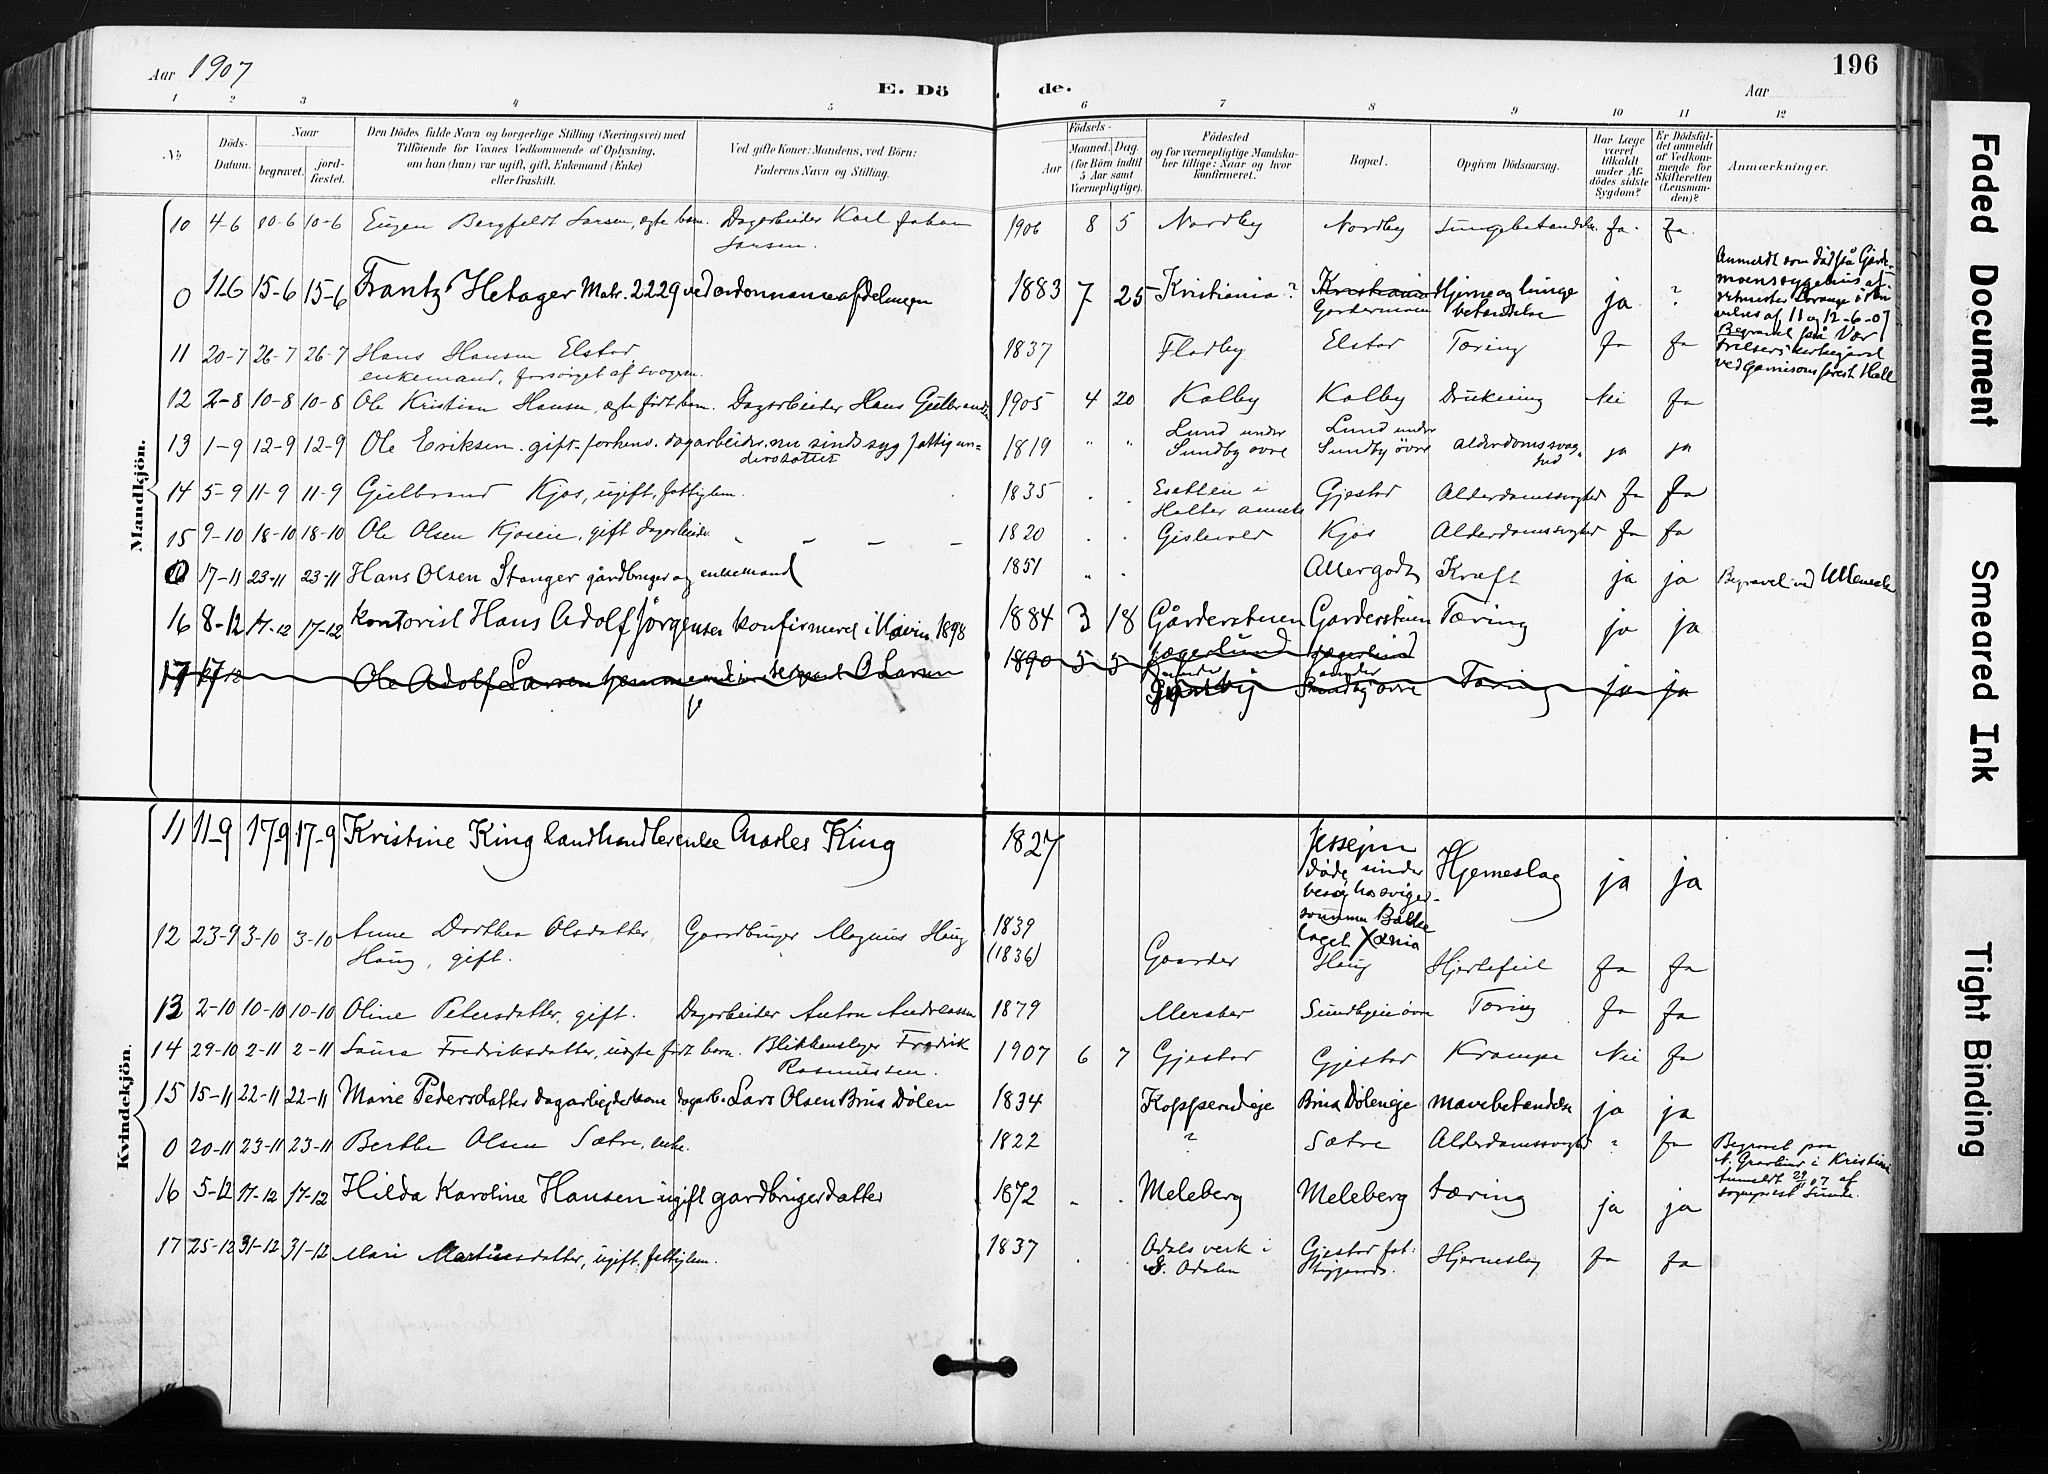 Aar 1907
E. Dö de.
Aar
196
1 2 3 4 5 6 7 8 9 10 11 12
№
Döds-Datum.
Naar
begravet.
jord-fæstet.
Den Dödes fulde Navn og borgerlige Stilling (Næringsvei) med
Tilföiende for Voxnes Vedkommende af Oplysning,
om han (hun) var ugift, gift, Enkemand (Enke)
eller fraskilt.
Ved gifte Koner: Mandens, ved Börn:
Faderens Navn og Stilling.
Födsels-
Aar
Maaned. Dag.
(for Börn indtil
5 Aar samt
Værnepligtige).
Födested
og for værnepligtige Mandska-
ber tillige: Naar og hvor
konfirmeret.
Bopæl.
Opgiven Dödsaarsag.
Har Læge
været
tilkaldt
under Af-
dödes sidste
Sygdom?
Er Dödsfal-
det anmeldt
af Vedkom-
mende for
Skifteretten
(Lensman-
den)?
Anmærkninger.
Mandkjön.
10 4-6 10-6 10-6 Eugen Bergfeldt Larsen, ægte barn. Dagarbeider Karl Johan
Larsen.
1906 8 5 Nordby Nordby Lungebetændelse. Ja. Ja.
0 11-6 15-6 15-6 Frantz Hetager Matr. 2229 ved ordonnanceafdelingen
1883 7 25 Kristiania? Kristiania Hjerne og lunge
Gardermoen betændelse ja ?
Anmeldt som död på Garder-
moens sygehus af
velses af 11 og 12-6-07
Begravet på Vor
Frelsers kirkegård
ved garnisonsprest Hall
11 20-7 26-7 26-7 Hans Hansen Elstad,
enkemand, forsörget af svogeren.
1837 Fladby Elstad Tæring Ja Ja
12 2-8 10-8 10-8 Ole Kristian Hansen, ægte födt barn. Dagarbeider Hans Gulbrands.
1905 4 20 Kolby Kolby Drukning Nei Ja
13 1-9 12-9 12-9 Ole Eriksen. gift. forhenv. dagarbeider. nu sindssyg fattigun-
derstöttet
1819 " " Lund under Lund under
Sundby övre Sundby övre alderdomssvag-
hed ja ja
14 5-9 11-9 11-9 Gulbrand Kjos, ugift, fattiglem.
1835 . . i Gjestad Alderdomssvaghed Ja Ja
Holter annex
15 9-10 18-10 18-10 Ole Olsen Kjoseie, gift dagarbeider.
1820 . . Gislevold Kjos Alderdomssvaghed Ja Ja
0 17-11 23-11 23-11 Hans Olsen Stanger gårdbruger og enkemand
1851 " " Allergodt Kræft ja ja Begravet ved Ullensaker
16 8-12 17-12 17-12 kontorist Hans Adolf Jörgensen konfirmeret i Mai 1898
1884 3 18 Gårderstuen Garderstuen Tæring ja ja
17 17-12 Ole Adolf Larsen hjemmeværende O. Larsen
1890 5 5 Jægerlund Jægerlund
under under
Sundby övre Tæring ja ja
Kvindekjön.
11 11-9 17-9 17-9 Kristine King landhandlerenke Charles King
1827 Jessejm
döde under
besög hos sviger-
sönnen Bække-
laget Xania
Hjerneslag ja ja
12 23-9 3-10 3-10 Anne Dorthea Olsdatter, Gaardbruger Magnus Haug
Haug, gift.
1839
(1836) Gaarder Haug Hjertefeil Ja Ja
13 2-10 10-10 10-10 Oline Petersdatter, gift. Dagarbeider Anton Andreassen
1879 Sundbyeie övre Tæring Ja Ja
14 29-10 2-11 2-11 Laura Fredriksdatter, uægte födt barn. Blikkenslager Fredrik
Rasmussen.
1907 6 7 Gjestad Gjestad Krampe Nei Ja
15 15-11 22-11 22-11 Marie Pedersdatter dagarbejderkone dagarb. Lars Olsen Brua Dölen
1834 Kopperudeje Brua Döleneje mavebetændelse ja ja
0 20-11 23-11 23-11 Berthe Olsen Sætre, enke.
1822 ? Sætre Alderdomssvaghed ? Ja
Begravet paa
N. Gravlund i Kristiania
Anmeldt 29/11 07 af
sogneprest Sunde.
16 5-12 17-12 17-12 Hilda Karoline Hansen ugift gardbrugerdatter
1872 " . Meleberg Meleberg tæring ja ja
17 25-12 31-12 31-12 Mari Martinusdatter, ugift, fattiglem.
1837 . Odals verk i Gjestad fat-
S. Odalen tiggaard. Hjerneslag Ja Ja
Faded Document
Smeared Ink
Tight Binding